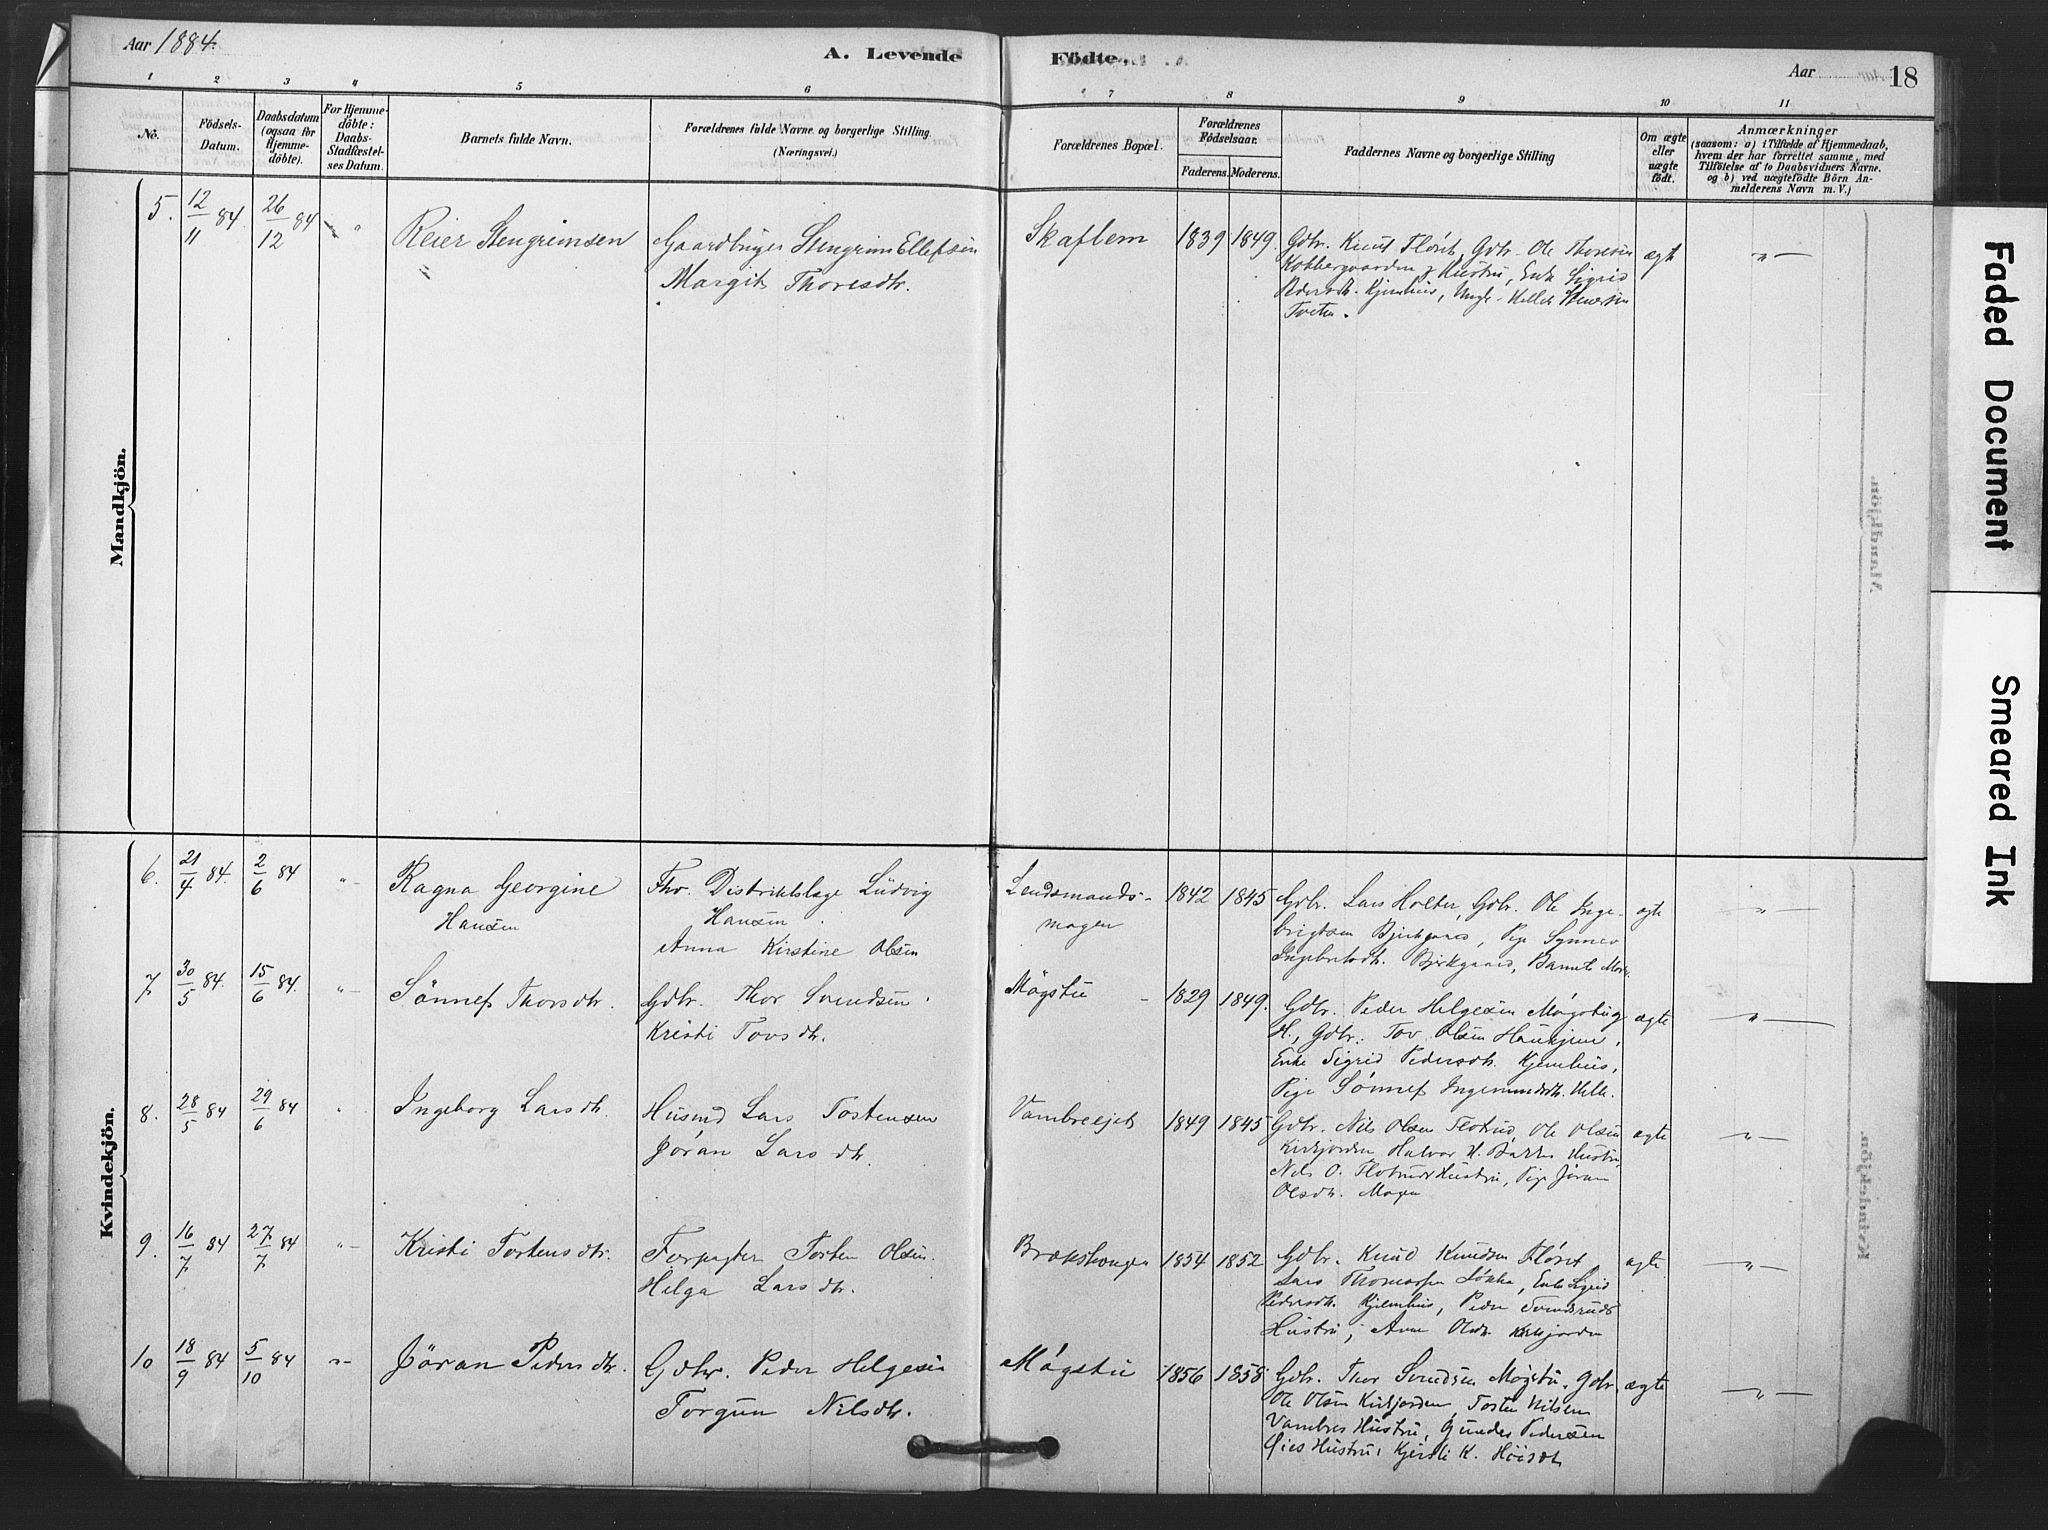 Aar 1884.
A. Levende
Födte.
Aar
18
1
2
3
4
5
6
7
8
9
10
11
No.
Födsels-
Datum.
Daabsdatum
(ogsaa for
Hjemme-
döbte).
For Hjemme-
döbte:
Daabs-
Stadfæstel-
ses Datum.
Barnets fulde Navn.
Forældrenes fulde Navne og borgerlige Stilling
(Næringsvei.)
Forældrenes Bopæl.
Forældrenes
Födselsaar.
Faderens.
Moderens.
Faddernes Navne og borgerlige Stilling
Om ægte
eller
uægte
födt.
Anmærkninger
(saasom: a) i Tilfælde af Hjemmedaab,
hvem der har forrettet samme, med
Tilföielse af to Daabsvidners Navne.
og b) ved uægtefödte Börn An-
melderens Navn m. V.)
Mandkjön.
5. 12/11 84. 26/12 84 " Reier Stengrimsen
Gaardbruger Stengrim Ellefsen
Margit Thoresdtr.
Skaflem 1839 1849.
Gdbr. Knut Fløset, Gdbr. Ole Thoresen
Kobbergaarden & Hustru, Enke Sigrid
Pedersdtr. Kjemhus, Ungk.
ægte
"
Kvindekjön.
6. 21/4 84. 2/6 84 " Ragna Georgine
Hansen
Fhv. Distriktslæge Ludvig
Hansen
Anna Kirstine Olsen
Lendsmands-
mogen
1842 1845
Gdbr. Lars Holter, Gdbr. Ole Inge-
brigtsen Bjerkgaard, Pige Synnev
Ingebretsdtr. Bjerkgaard, Barnets Mor.
ægte
"
7. 30/5 84. 15/6 84. " Sönnef Thorsdtr.
Gdbr. Thor Svendsen.
Kristi Tovsdtr.
Mögstu 1829 1849.
Gdbr. Peder Helgesen Møgstu og
H., Gdbr. Tov Olsen Haukjem,
Enke Sigrid Pedersdtr. Kjemhus,
Pige Sønnef Ingemundsdtr. Velle.
ægte
"
8. 28/5 84 29/6 84 " Ingeborg Larsdtr.
Husmd Lars Tostensen
Jøran Larsdtr.
Vambreejet 1849 1845
Gdbr. Nils Olsen Flotrud, Ole Olsen
Kirkjorden Halvor H. Bakkes Hustru,
Nils O. Flotruds Hustru, Pige Jøran
Olsdtr. Mogen
ægte
"
9. 16/7 84 27/7 84 " Kristi Tostensdtr.
Forpagter Tosten Olsen.
Helga Larsdtr.
1854 1852
Gdbr. Knud Knudsen Fløset
Lars Thomassen Løkka, Enke Sigrid
Pedersdtr. Kjemhus, Peder Svendsruds
Hustru, Anne Olsdtr. Kirkjorden
ægte
"
10 18/9 84 5/10 84 " Jöran Pedersdtr.
Gdbr. Peder Helgesen
Torgun Nilsdtr.
Møgstu 1856 1858
Gdbr. Thor Svendsen Møgstu, Gdbr.
Ole Olsen Kirkjorden, Tosten Nilsen
Vambres Hustru, Gunder Pedersen
Qies Hustru, Kjersti K. Høisdt
ægte
"
Faded Document
Smeared Ink